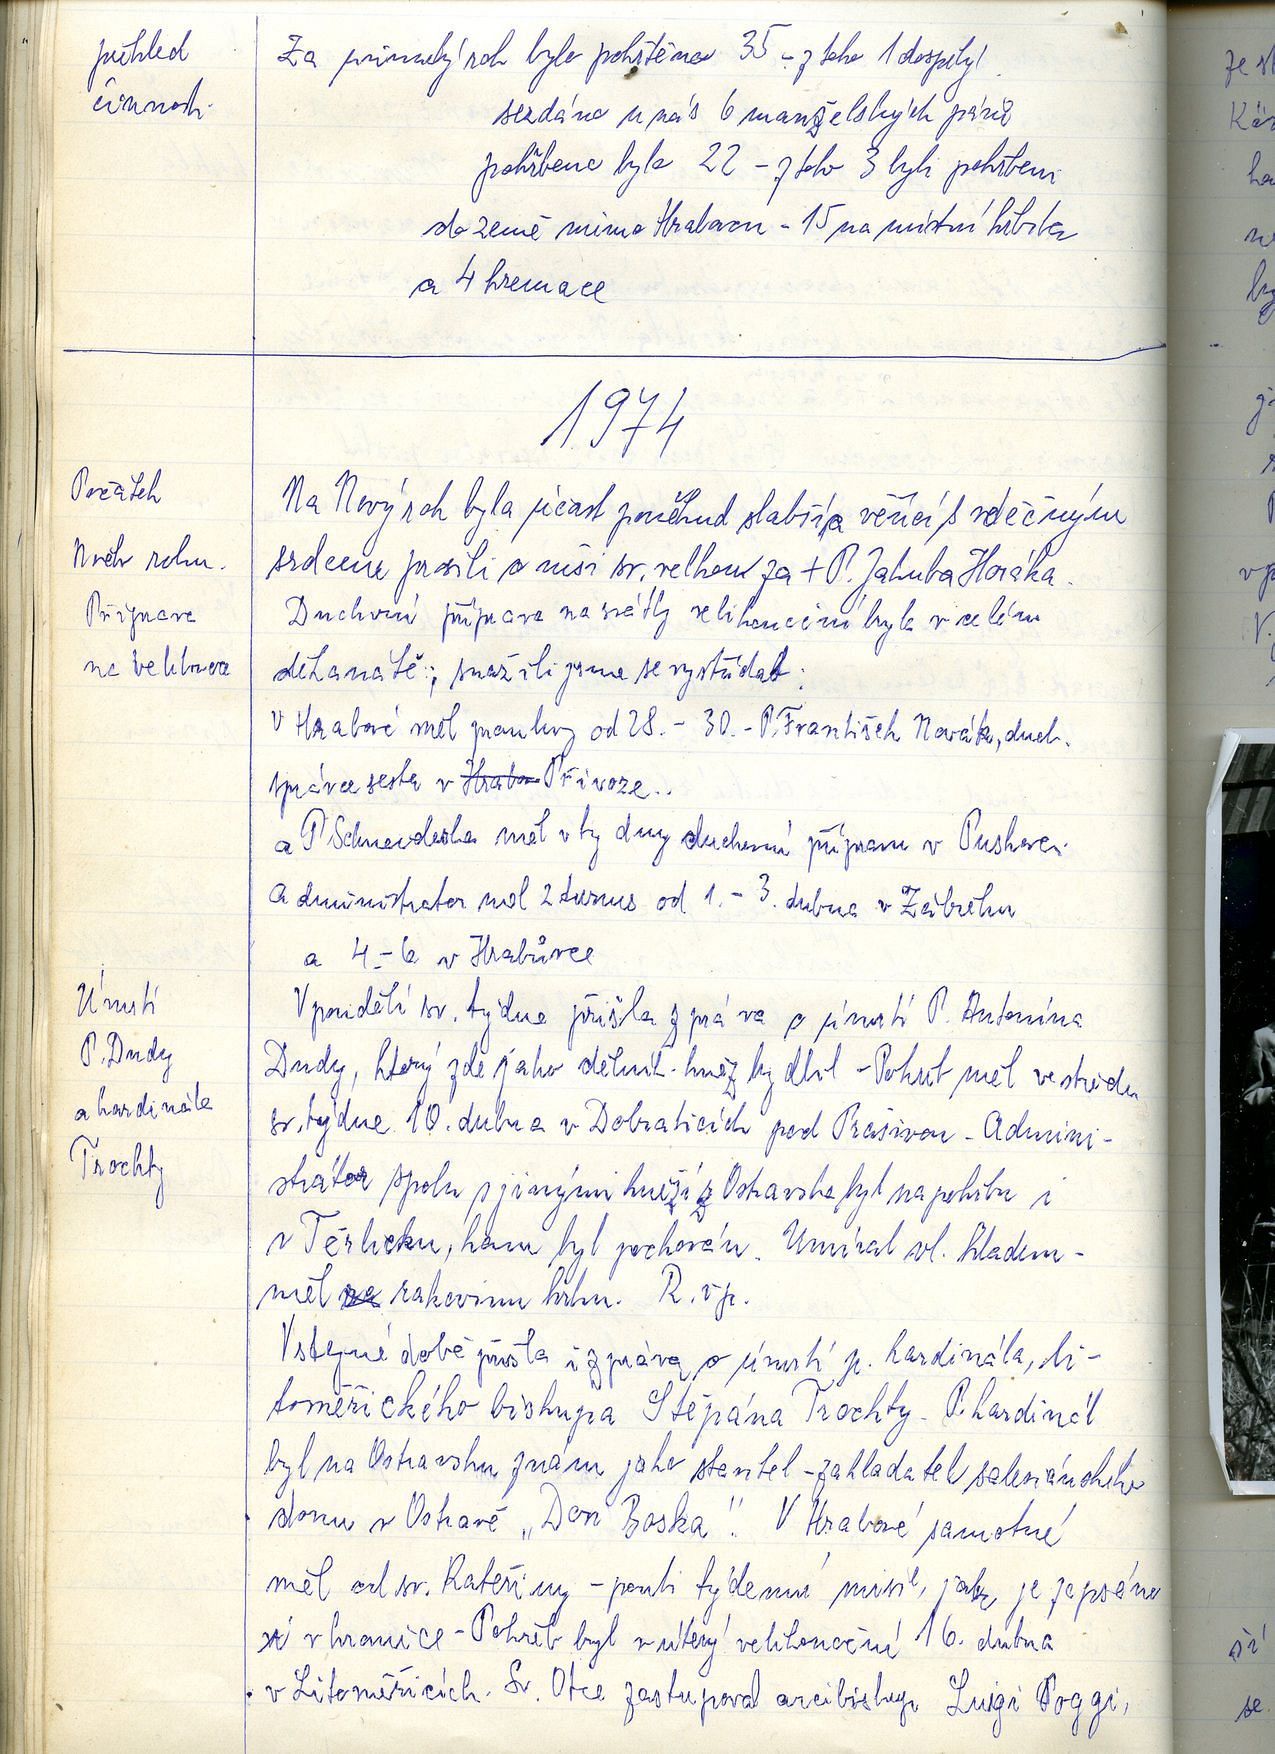 přehled
činnosti
Za minulý rok bylo pokřtěno 35 - z toho 1 dospělý.
sezdáno u nás 6 manželských párů
pohřbeno bylo 22 - z toho 3 byli pohřbeni
do země mimo Hrabovou - 15 na místní hřbitov
a 4 kremace
1974
Počátek
Nového roku.
Na Nový rok byla účast poněkud slabší, a věřící s vděčným
srdcem prosili o mši sv. velkou za + P. Jakuba Horáka.
Příprava
na velikonoce
Duchovní příprava na svátky velikonoční byla v celém
děkanatě; snažili jsme se vystřídat.
V Hrabové měl promluvy od 28. - 30. - P. František Novák, duch.
správce sester v Přívoze.
a P. měl v ty dny duchovní přípravu v Pustkovci
Administrator měl 2 turnus od 1. - 3. dubna v Zábřehu
a 4-6 v Hrabůvce
Úmrtí
P. Dudy
a kardinála
Trochty
V pondělí sv. týdne přišla zpráva o úmrtí P. Antonína
Dudy, který zde jako dělník-kněz bydlil - Pohřeb měl ve středu
sv. týdne 10. dubna v Dobraticích pod Prašivou - Admini-
strátor spolu s jinými kněžími z Ostravska byl na pohřbu i
v Těrlicku, kam byl pochován. Umíral vl. hladem -
měl rakovinu krku. R. i. p.
V stejné době přišla i zpráva o úmrtí p. kardinála, li-
toměřického biskupa Štěpána Trochty. P. kardinál
byl na Ostravsku znám jako stavitel - zakladatel salesiánského
domu v Ostravě „Don Boska". V Hrabové samotné
měl od sv. Kateřiny - pouti týdenní misie, jak je zapsáno
v kronice - Pohřeb byl v úterý velikonoční 16. dubna
v Litoměřicích. Sv. Otce zastupoval arcibiskup Luigi Poggi,